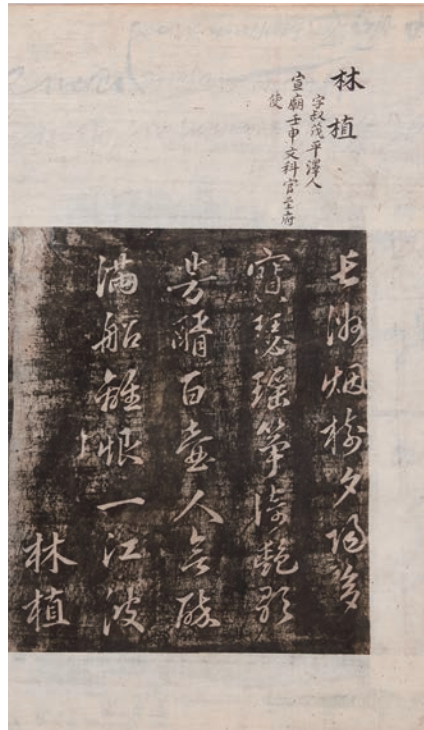 林植
字叔茂平澤人
宣廟壬申文科官至府
使
長洲烟樹夕陽多
寶瑟瑤箏倚艶歌
芳醑百壺人醉
滿船離恨一江波
林植